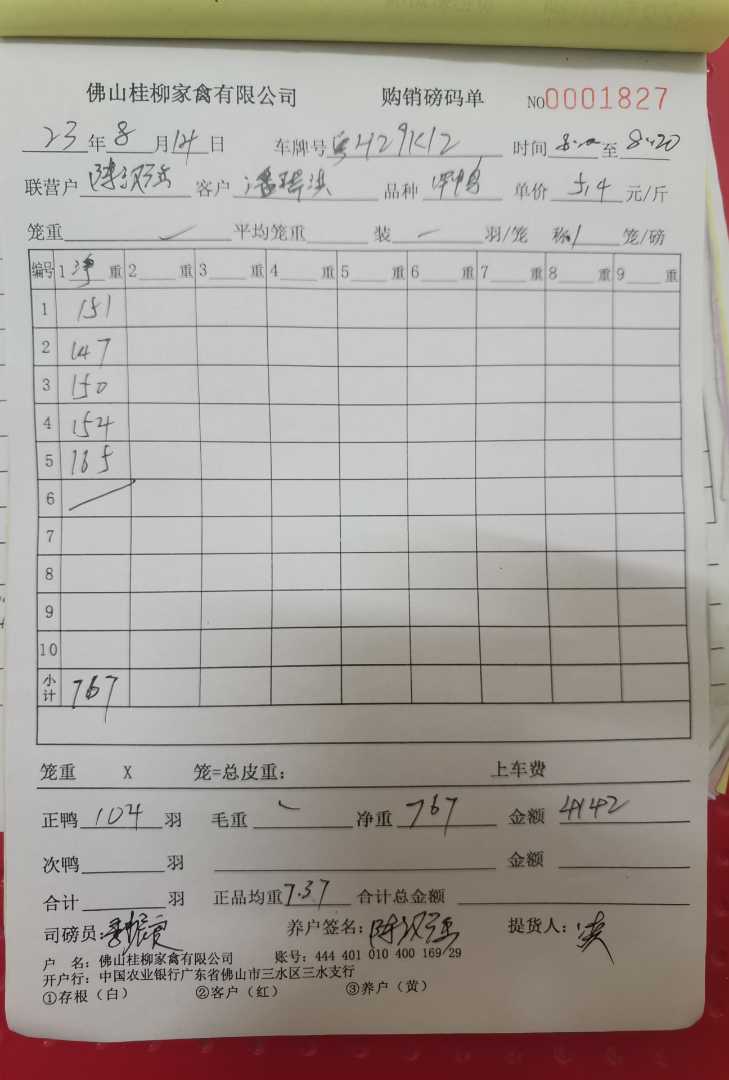 佛山桂柳家禽有限公司 购销磅码单 NO0001827
23年8月14日 车牌号粤H429K12 时间8:00至8:20
联营户 陈汉强 客户 潘 洪 品种 单价5.4元/斤
笼重 平均笼重 装 一 羽/笼 称1笼/磅
编号 1净重 2 重 3 重 4 重 5 重 6 重 7 重 8 重 9 重
1 151
2 147
3 150
4 154
5 165
6
7
8
9
10
小计 767
笼重 X 笼=总皮重: 上车费
正鸭104羽 毛重 净重767 金额4142
次鸭 羽 金额
合计 羽 正品均重7.37 合计总金额
司磅员: 养户签名:陈汉强 提货人:
户 名: 佛山桂柳家禽有限公司 账号: 444 401 010 400 169/29
开户行: 中国农业银行广东省佛山市三水区三水支行
①存根(白) ②客户(红) ③养户(黄)